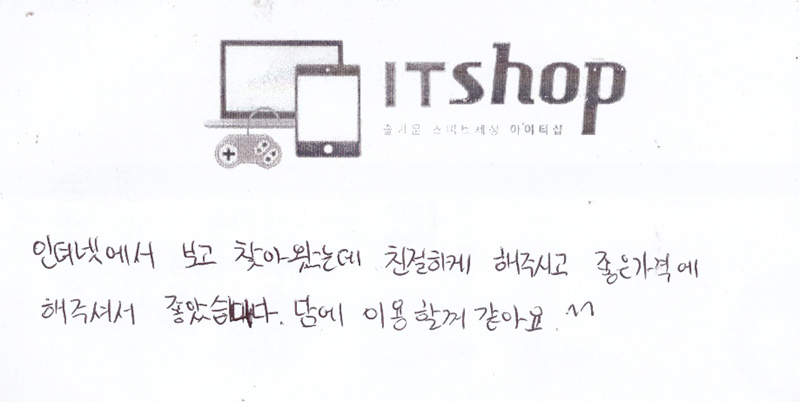 ITshop
즐거운 스마트세상 아이티샵
인터넷에서 보고 찾아왔는데 친절하게 해주시고 좋은가격에
해주셔서 좋았습니다. 담에 이용할께 같아요 ^^